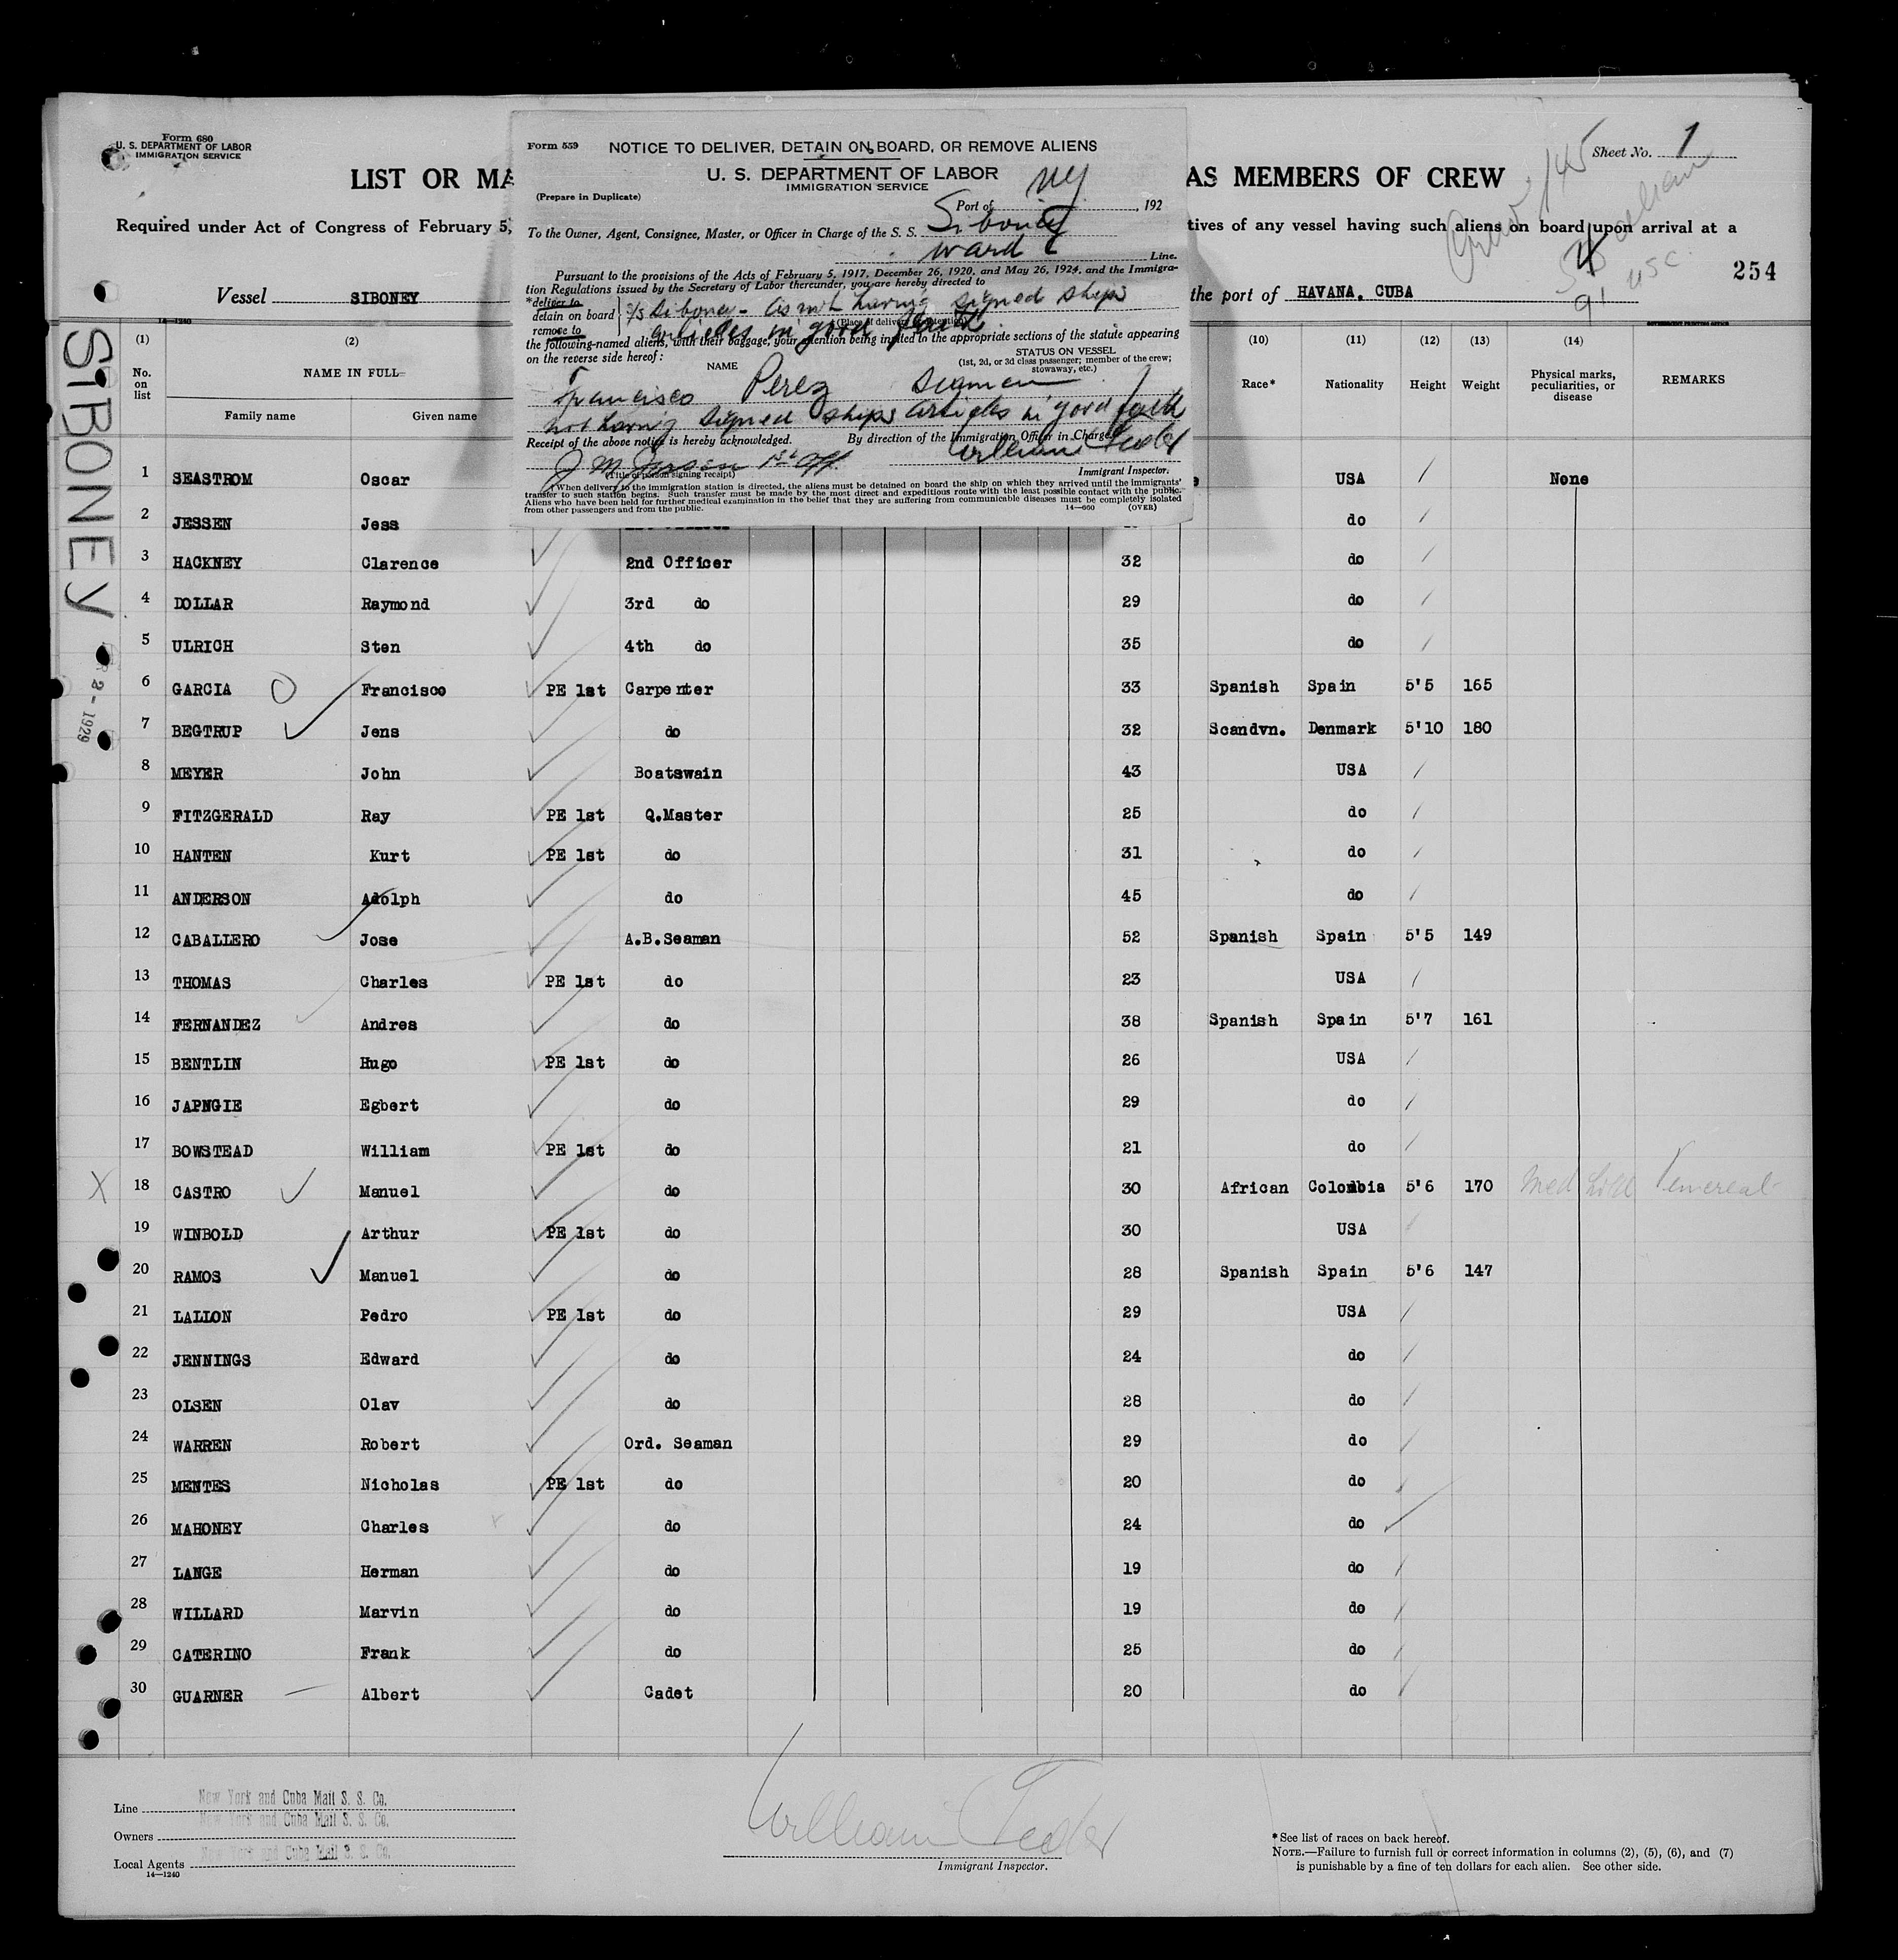 Form 680
U. S. DEPARTMENT OF LABOR
IMMIGRATION SERVICE
Sheet No. 1
LIST OR MA
AS MEMBERS OF CREW
Required under Act of Congress of February 5,
tives of any vessel having such aliens on board upon arrival at a
254
Vessel SIBONEY
the port of HAVANA, CUBA
14-1240
SIBONEY
2 - 1929
Form 559
NOTICE TO DELIVER, DETAIN ON BOARD, OR REMOVE ALIENS
U. S. DEPARTMENT OF LABOR
IMMIGRATION SERVICE
(Prepare in Duplicate)
Port of NY, 192
To the Owner, Agent, Consignee, Master, or Officer in Charge of the S. S. Siboney
Ward Line.
Pursuant to the provisions of the Acts of February 5, 1917, December 26, 1920, and May 26, 1924, and the Immigra-
tion Regulations issued by the Secretary of Labor thereunder, you are hereby directed to
*deliver to
detain on board
remove to
S/S Siboney - as not having signed ships
articles in good faith
(Place of delivery or detention)
the following-named aliens, with their baggage, your attention being invited to the appropriate sections of the statute appearing
on the reverse side hereof:
NAME
STATUS ON VESSEL
(1st, 2d, or 3d class passenger; member of the crew;
stowaway, etc.)
Francisco Perez Seaman
not having signed ships articles in good faith
Receipt of the above notice is hereby acknowledged. By direction of the Immigration Officer in Charge,
William Feder
1st Off.
(Title of person signing receipt)
Immigrant Inspector.
When delivery to the immigration station is directed, the aliens must be detained on board the ship on which they arrived until the immigrants'
transfer to such station begins. Such transfer must be made by the most direct and expeditious route with the least possible contact with the public.
Aliens who have been held for further medical examination in the belief that they are suffering from communicable diseases must be completely isolated
from other passengers and from the public. 14-660 (OVER)
(1) (2) (10) (11) (12) (13) (14)
No. on list NAME IN FULL Race* Nationality Height Weight Physical marks, peculiarities, or disease REMARKS
Family name Given name
1 SEASTROM Oscar USA None
2 JESSEN Jess do
3 HACKNEY Clarence 2nd Officer 32 do
4 DOLLAR Raymond 3rd do 29 do
5 ULRICH Sten 4th do 35 do
6 GARCIA Francisco PE 1st Carpenter 33 Spanish Spain 5'5 165
7 BEGTRUP Jens do 32 Scandvn. Denmark 5'10 180
8 MEYER John Boatswain 43 USA
9 FITZGERALD Ray PE 1st Q.Master 25 do
10 HANTEN Kurt PE 1st do 31 do
11 ANDERSON Adolph do 45 do
12 CABALLERO Jose A.B.Seaman 52 Spanish Spain 5'5 149
13 THOMAS Charles PE 1st do 23 USA
14 FERNANDEZ Andres do 38 Spanish Spain 5'7 161
15 BENTLIN Hugo PE 1st do 26 USA
16 JAPNGIE Egbert do 29 do
17 BOWSTEAD William PE 1st do 21 do
18 CASTRO Manuel do 30 African Colombia 5'6 170 Med hold Venereal
19 WINBOLD Arthur PE 1st do 30 USA
20 RAMOS Manuel do 28 Spanish Spain 5'6 147
21 LALION Pedro PE 1st do 29 USA
22 JENNINGS Edward do 24 do
23 OLSEN Olav do 28 do
24 WARREN Robert Ord. Seaman 29 do
25 MENTES Nicholas PE 1st do 20 do
26 MAHONEY Charles do 24 do
27 LANGE Herman do 19 do
28 WILLARD Marvin do 19 do
29 CATERINO Frank do 25 do
30 GUARNER Albert Cadet 20 do
Line New York and Cuba Mail S. S. Co.
Owners New York and Cuba Mail S. S. Co.
Local Agents New York and Cuba Mail S. S. Co.
14-1240
William Feder
Immigrant Inspector.
*See list of races on back hereof.
NOTE.—Failure to furnish full or correct information in columns (2), (5), (6), and (7)
is punishable by a fine of ten dollars for each alien. See other side.